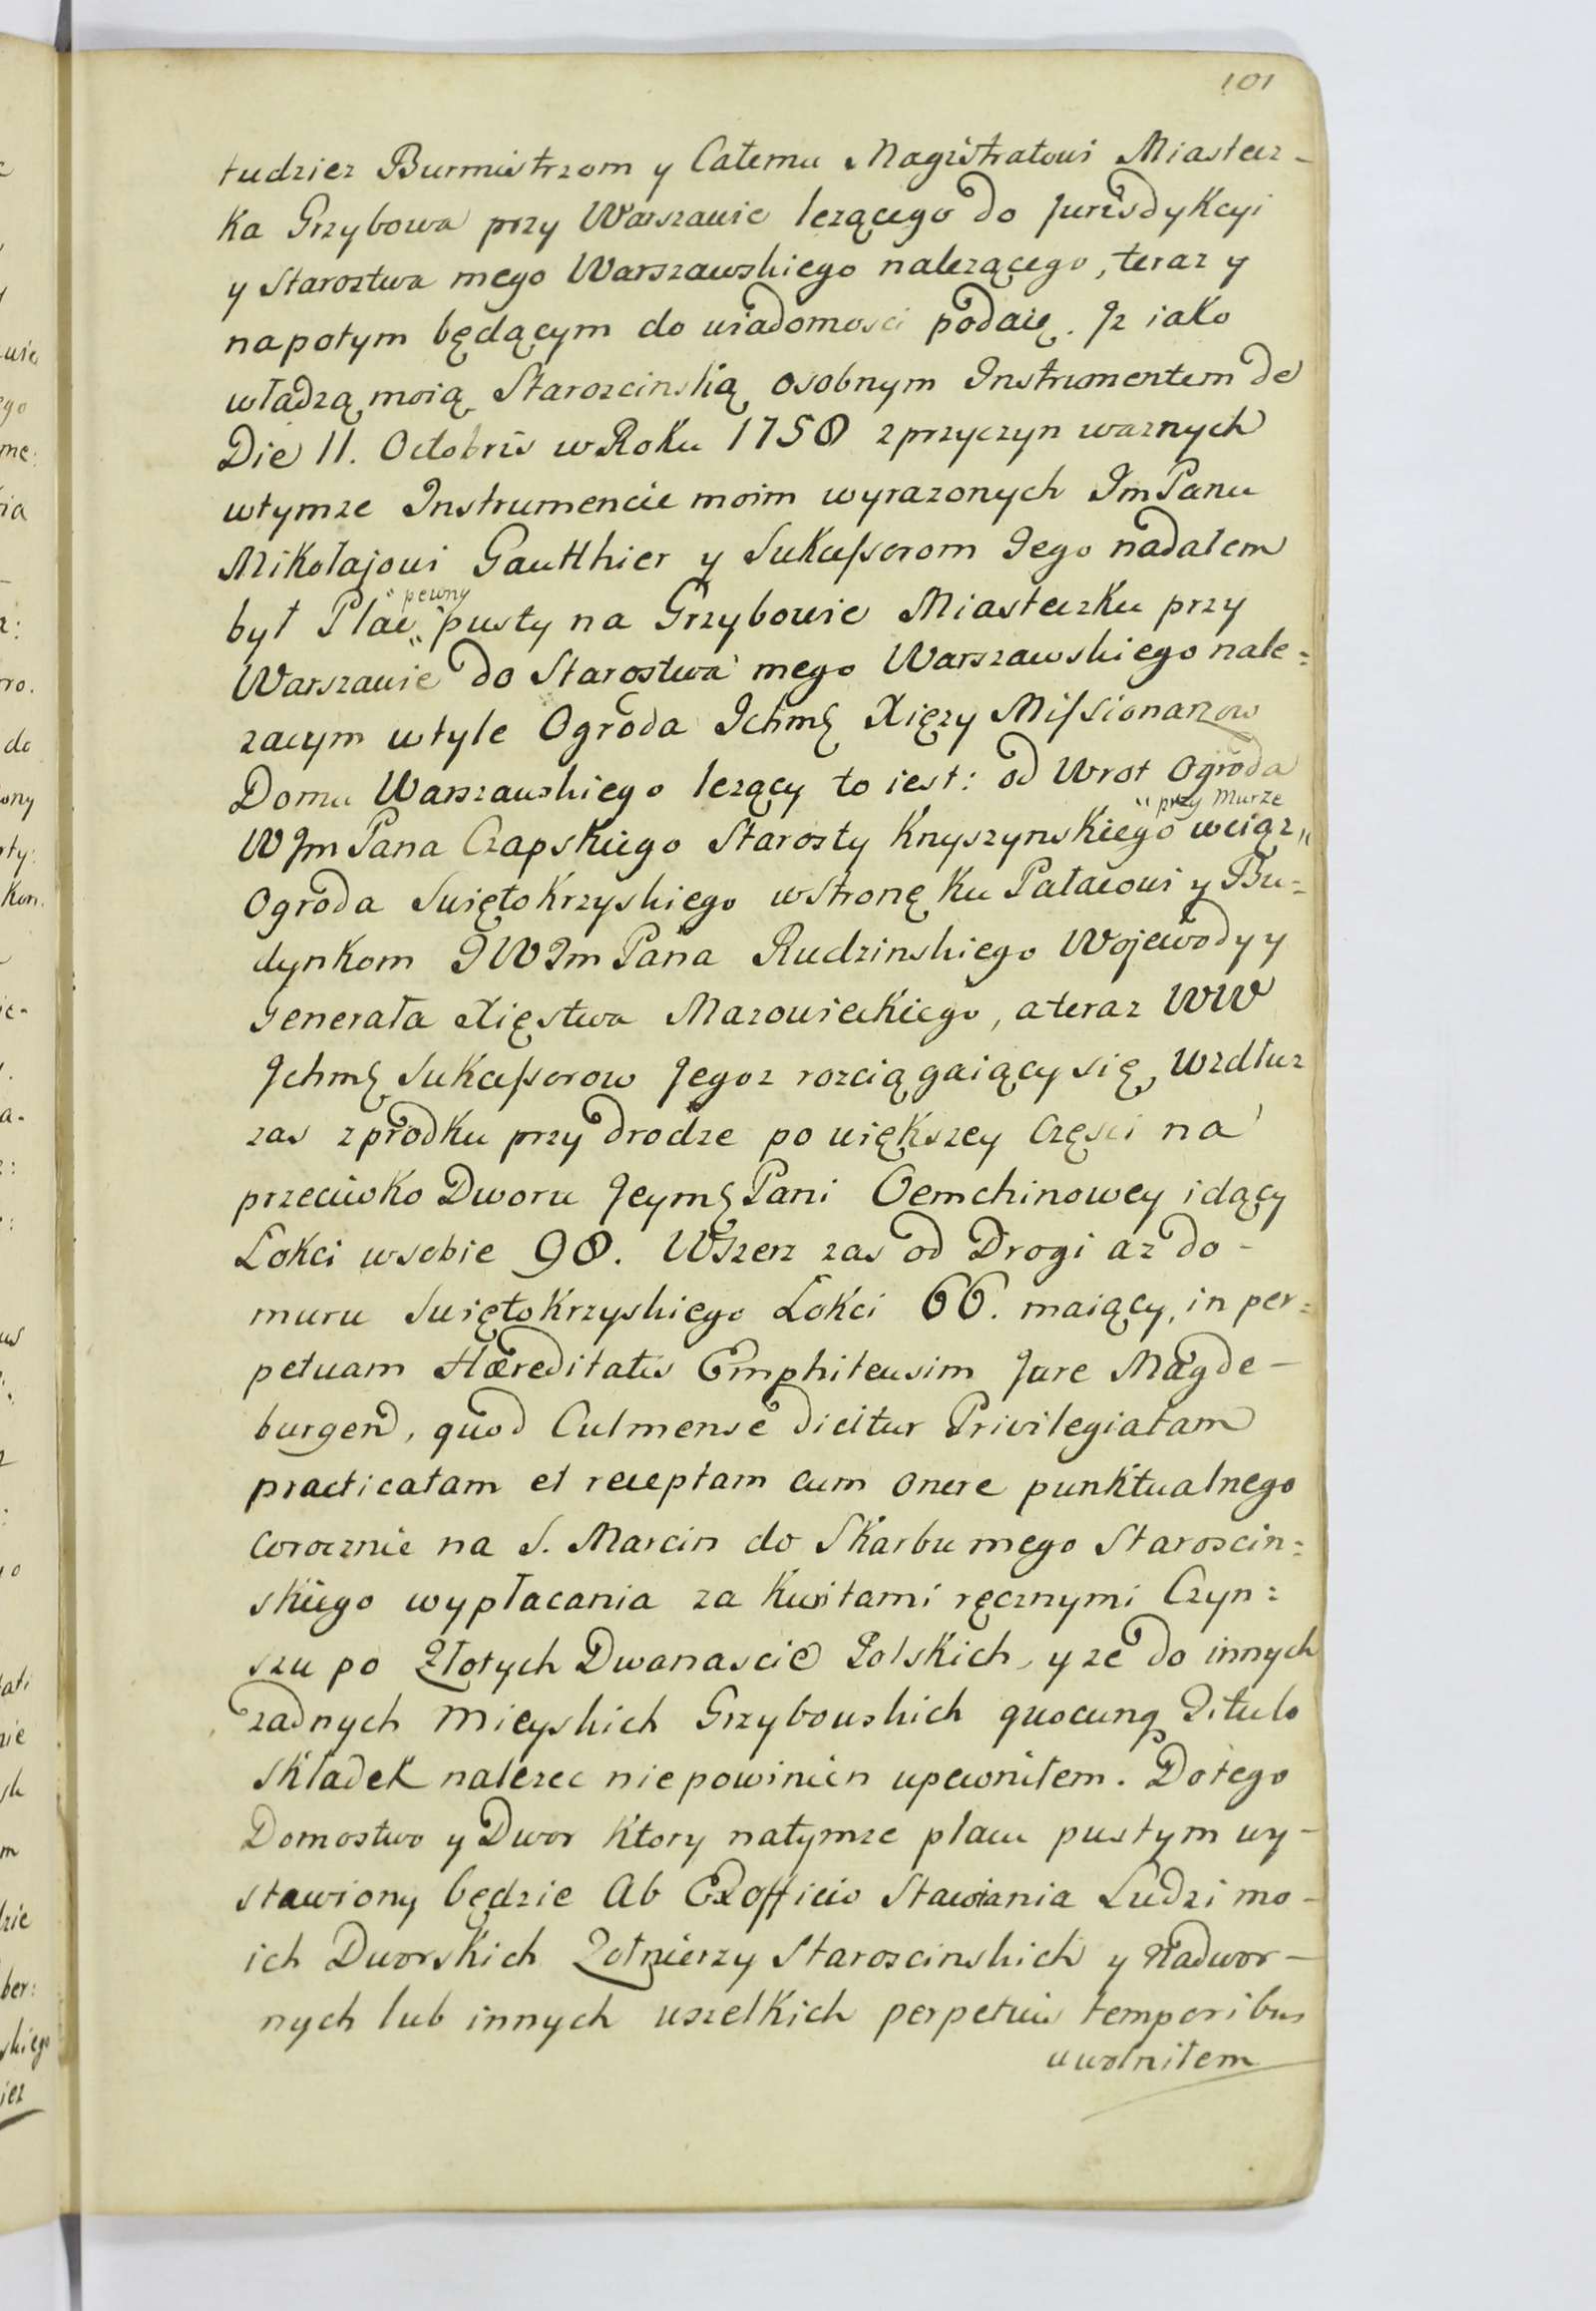 101
tudziez Burmistrzom y Całemu Magistratowi Miastecz-
ka Grzybowa przy Warszawie lezącego do Jurisdykcyi
y Starostwa mego Warszawskiego nalezącego, teraz y
napotym będącym do wiadomosci podaię. Jz iako
władzą moią Staroscinską osobnym Instrumentem de
Die 11. Octobris w Roku 1758 z przyczyn waznych
wtymze Instrumencie moim wyrazonych ImPanu
Mikołajowi Gautthier y Sukcessorom Jego nadałem
pewny
był Plac pusty na Grzybowie Miasteczku przy
Warszawie do Starostwa mego Warszawskiego nale=
zacym wtyle Ogroda Ichmć Xięzy Missionarzow
Domu Warszawskiego lezący to iest: od Wrot Ogroda
przy Murze
WJm Pana Czapskiego Starosty Knyszynskiego wciąz
Ogroda Swięto Krzyskiego wstronę Ku Pałacowi y Bu=
dynkom JWJm Pana Rudzinskiego Wojewody y
Generała Xięstwa Mazowieckiego, ateraz WW
Jchmć Sukcessorow Jegoz rozciągaiący się, Wzdłuz
zas zprodku przy drodze po większey Częsci na
przeciwko Dworu Jeymć Pani Oemchinowey idący
Łokci wsobie 98. Wszerz zas od Drogi az do-
muru Swięto Krzyskiego Łokci 66. maiący, in per=
petuam Hæreditatis Emphiteusim Jure Magde-
burgen, quod Culmense dicitur Privilegiatam
practicatam et receptam cum onere punktualnego
corocznie na S. Marcin do Skarbu mego Staroscin=
skiego wypłacania za Kwitami ręcznymi Czyn=
szu po Złotych Dwanascie Polskich, y ze do innych
zadnych Mieyskich Grzybowskich quocunq Titulo
Składek nalezec nie powinien upewniłem. Dotego
Domostwo y Dwor Ktory natymze placu pustym wy-
stawiony będzie Ab Exofficio Stawiania Ludzi mo-
ich Dworskich Zołnierzy Staroscinskich y Nadwor-
nych lub innych wszelkich perpetuis temporibus
uwolniłem